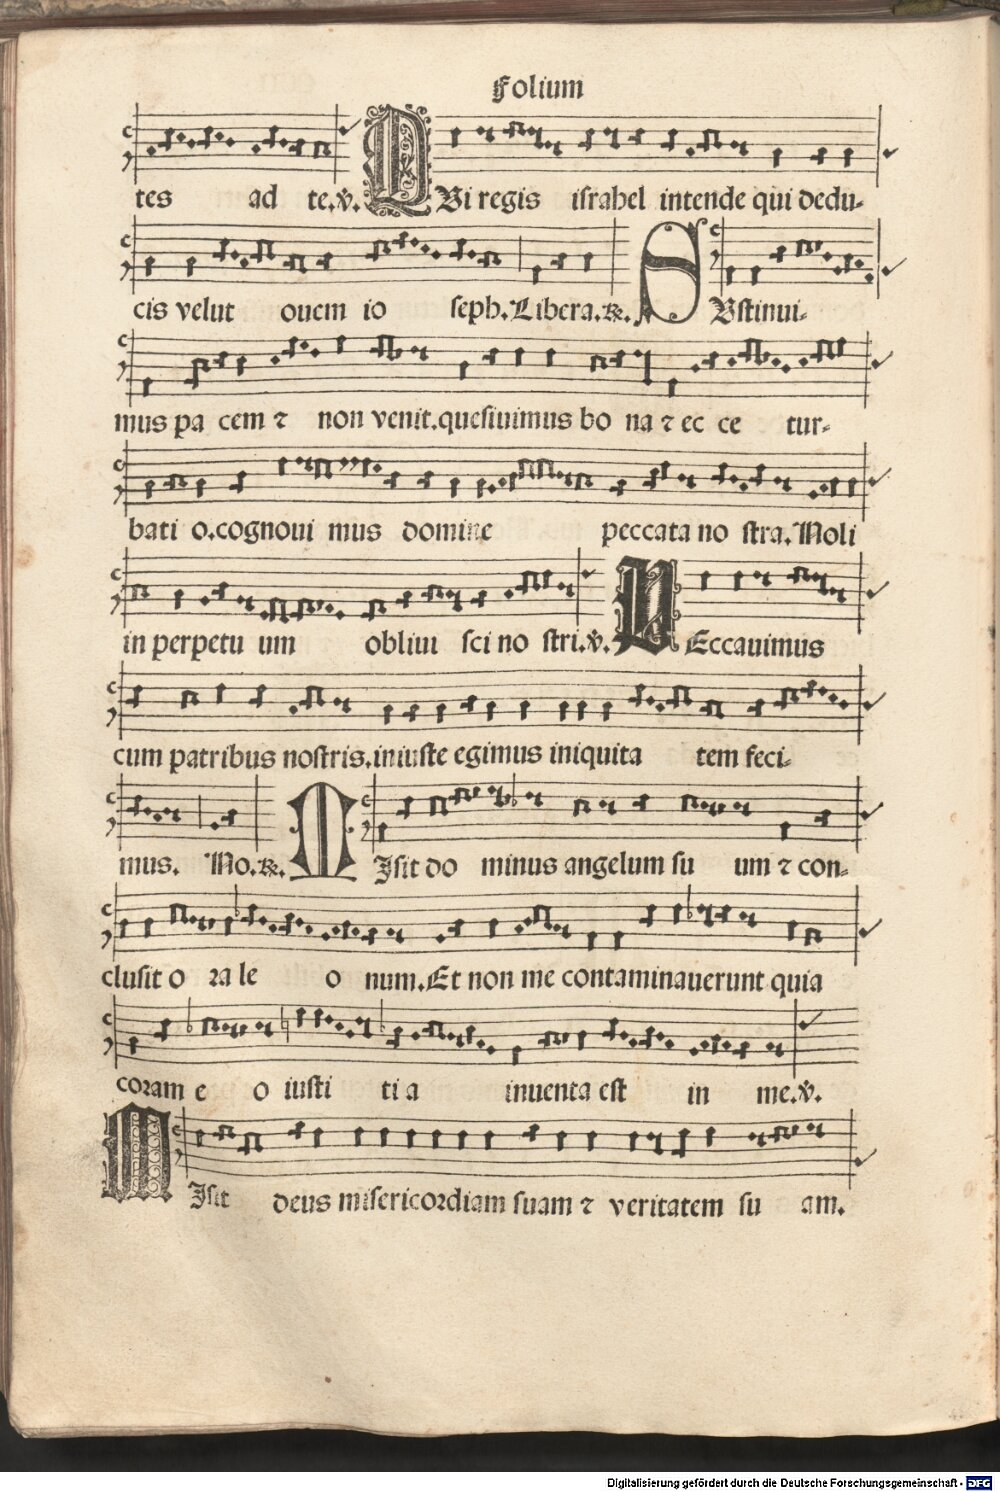 Folium
tes ad te.℣. QVi regis israhel intende qui dedu-
cis velut ouem io seph.Libera.℟. SVstinui-
mus pa cem ⁊ non venit.quesiuimus bo na ⁊ ec ce tur-
bati o.cognoui mus domine peccata no stra.Noli
in perpetu um obliui sci no stri.℣. PEccauimus
cum patribus nostris.iniuste egimus iniquita tem feci-
mus. No.℟. MIsit do minus angelum su um ⁊ con-
clusit o ra le o num.Et non me contaminauerunt quia
coram e o iusti ti a inuenta est in me.℣.
MIsit deus misericordiam suam ⁊ veritatem su am.
Digitalisierung gefördert durch die Deutsche Forschungsgemeinschaft - DFG